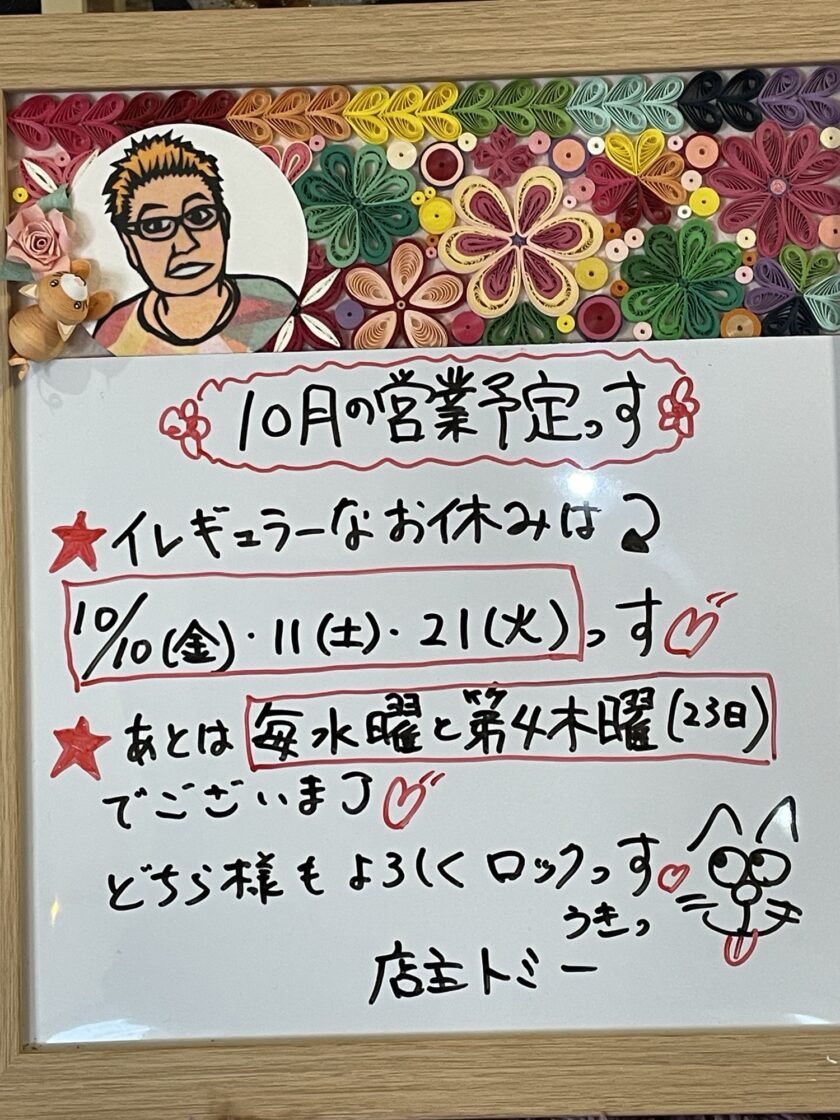 10月の営業予定っす
★イレギュラーなお休みは
10/10(金)・11(土)・21(火)っす
★あとは毎水曜と第4木曜(23日)
でございま
どちら様もよろしくロックっす
うきっ
店主トミー